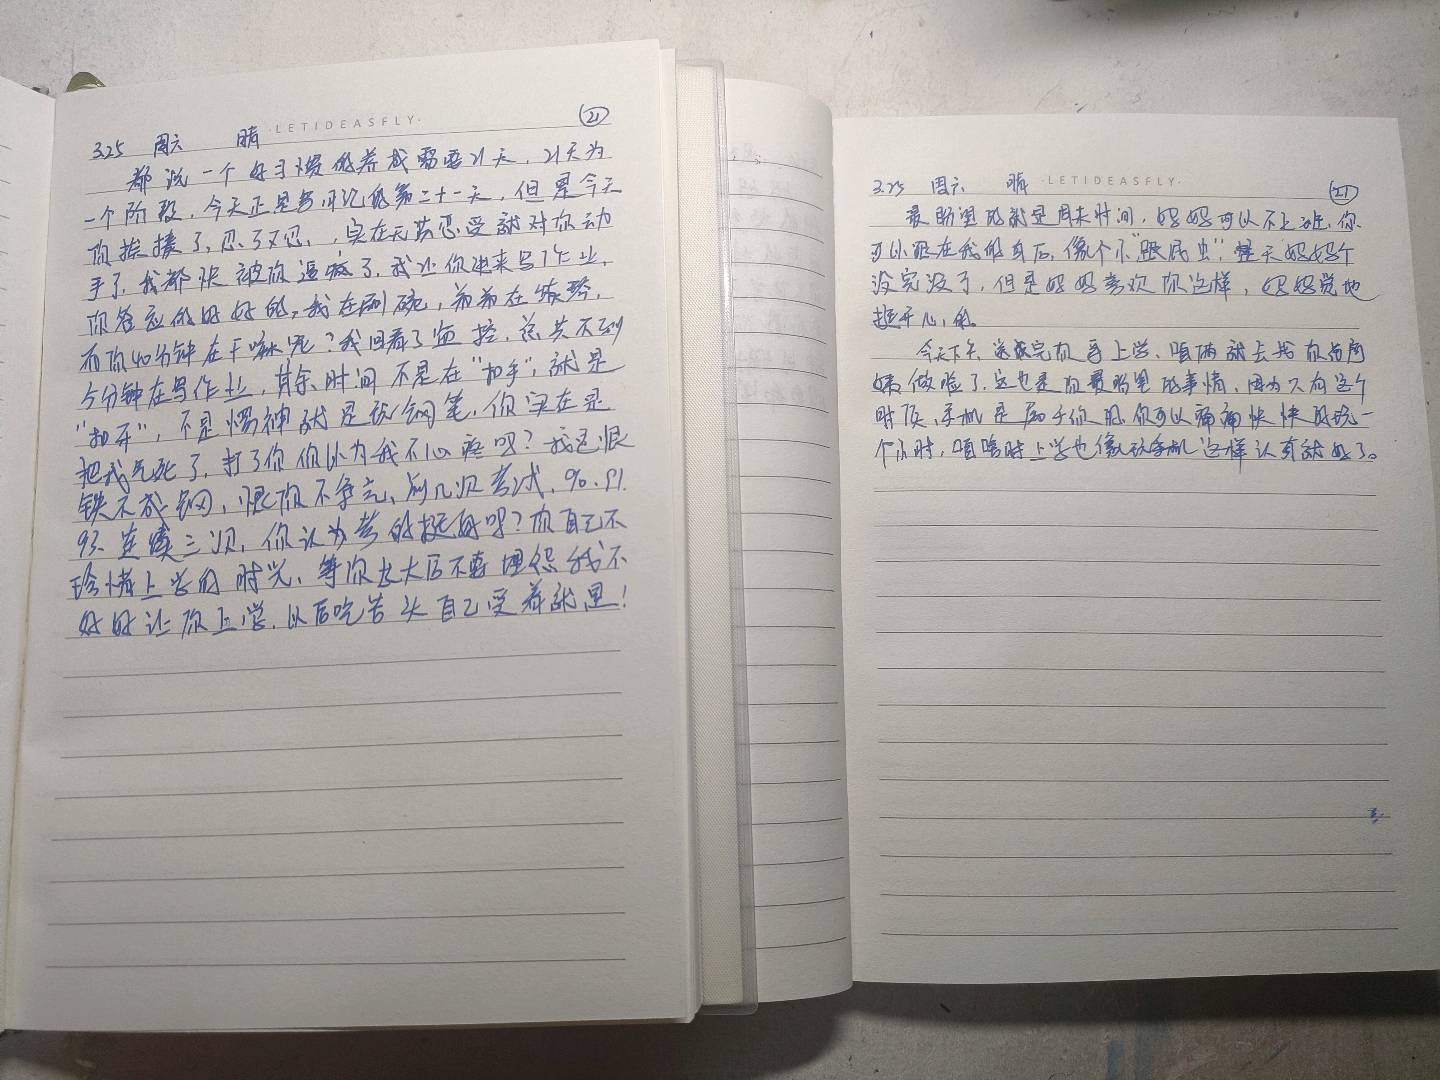 ·LETIDEASFLY·
㉑
3.25 周六 晴
都说一个好习惯的养成需要21天，21天为
一个阶段，今天正是写日记的第二十一天，但是今天
你挨揍了，忍了又忍，实在无法忍受就对你动
手了，我都快被你逼疯了，我让你进来写个作业，
你答应的好好的，我在刷碗，弟弟在练琴，
而你40分钟在干嘛呢？我回看了监控，总共不到
5分钟在写作业，其余时间不是在“扣手”，就是
“扣牙”，不是愣神就是玩钢笔，你实在是
把我气死了，打了你你以为我不心疼吗？我是恨
铁不成钢，恨你不争气，前几次考试，90、91、
93、连续三次，你认为考的挺好吗？你自己不
珍惜上学的时光，等你长大后不要埋怨我不
好好让你上学，以后吃苦头自己受着就是！
·LETIDEASFLY·
㉑
3.25 周六 晴
最盼望的就是周末时间，妈妈可以不上班，你
可以跟在我的身后，像个小“跟屁虫”，整天妈妈个
没完没了，但是妈妈喜欢你这样，妈妈觉地
挺开心的。
今天下午，送完你哥上学，咱俩就去找你
妹做脸了，这也是你最盼望的事情，因为只有这个
时候，手机是属于你的，你可以痛痛快快的玩一
个小时，咱啥时上学也像玩手机这样认真就好了。